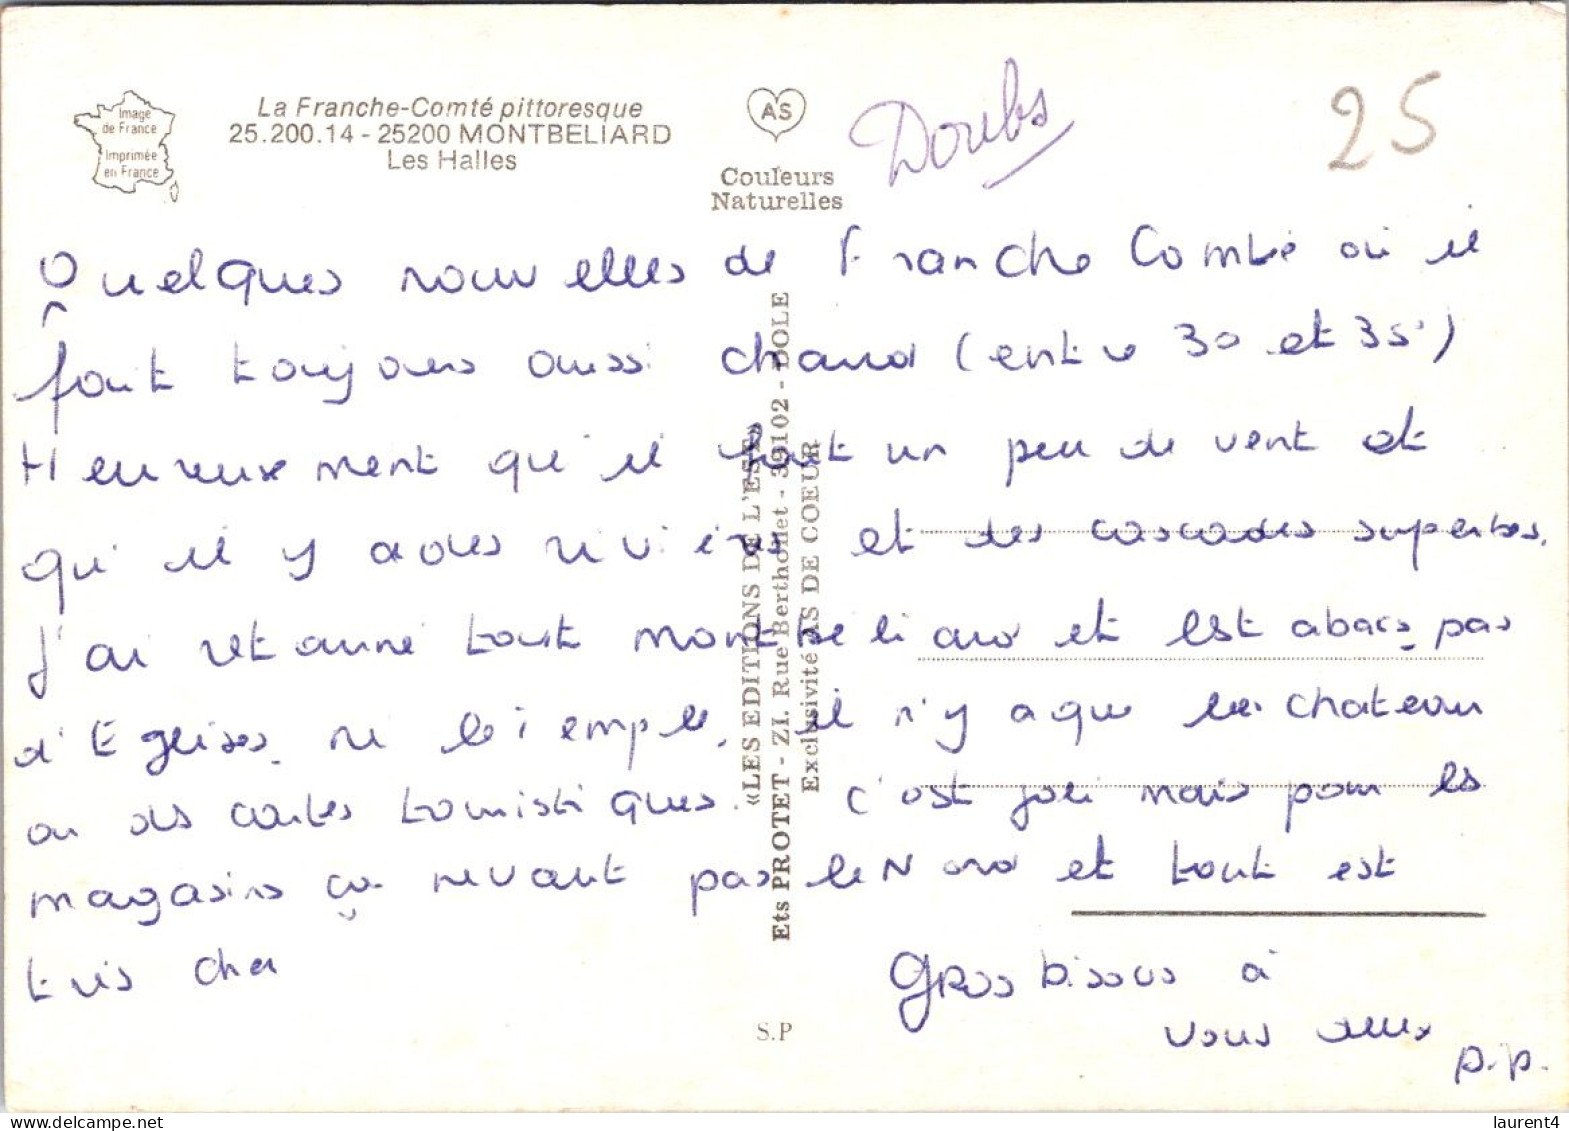 Image
de France
Imprimée
en France
La Franche-Comté pittoresque
25.200.14 - 25200 MONTBELIARD
Les Halles
AS
Couleurs
Naturelles
Doubs
25
Quelques nouvelles de Franche Comté où il
fait toujours aussi chaud (entre 30 et 35°)
Heureusement qu'il fait un peu de vent et
qu'il y a des rivières et des cascades superbes.
J'ai retourné tout Montbeliard et les tabacs, pas
d'Eglises ni le Temple, il n'y a que le chateau
ou des cartes touristiques. C'est joli mais pour les
magasins ça ne vaut pas le Nord et tout est
très cher
Gros bisous à
vous deux
p.p.
«LES EDITIONS DE L'EST»
Ets PROTET - ZI. Rue Berthollet - 39102 - DOLE
Exclusivité AS DE COEUR
S.P
laurent4